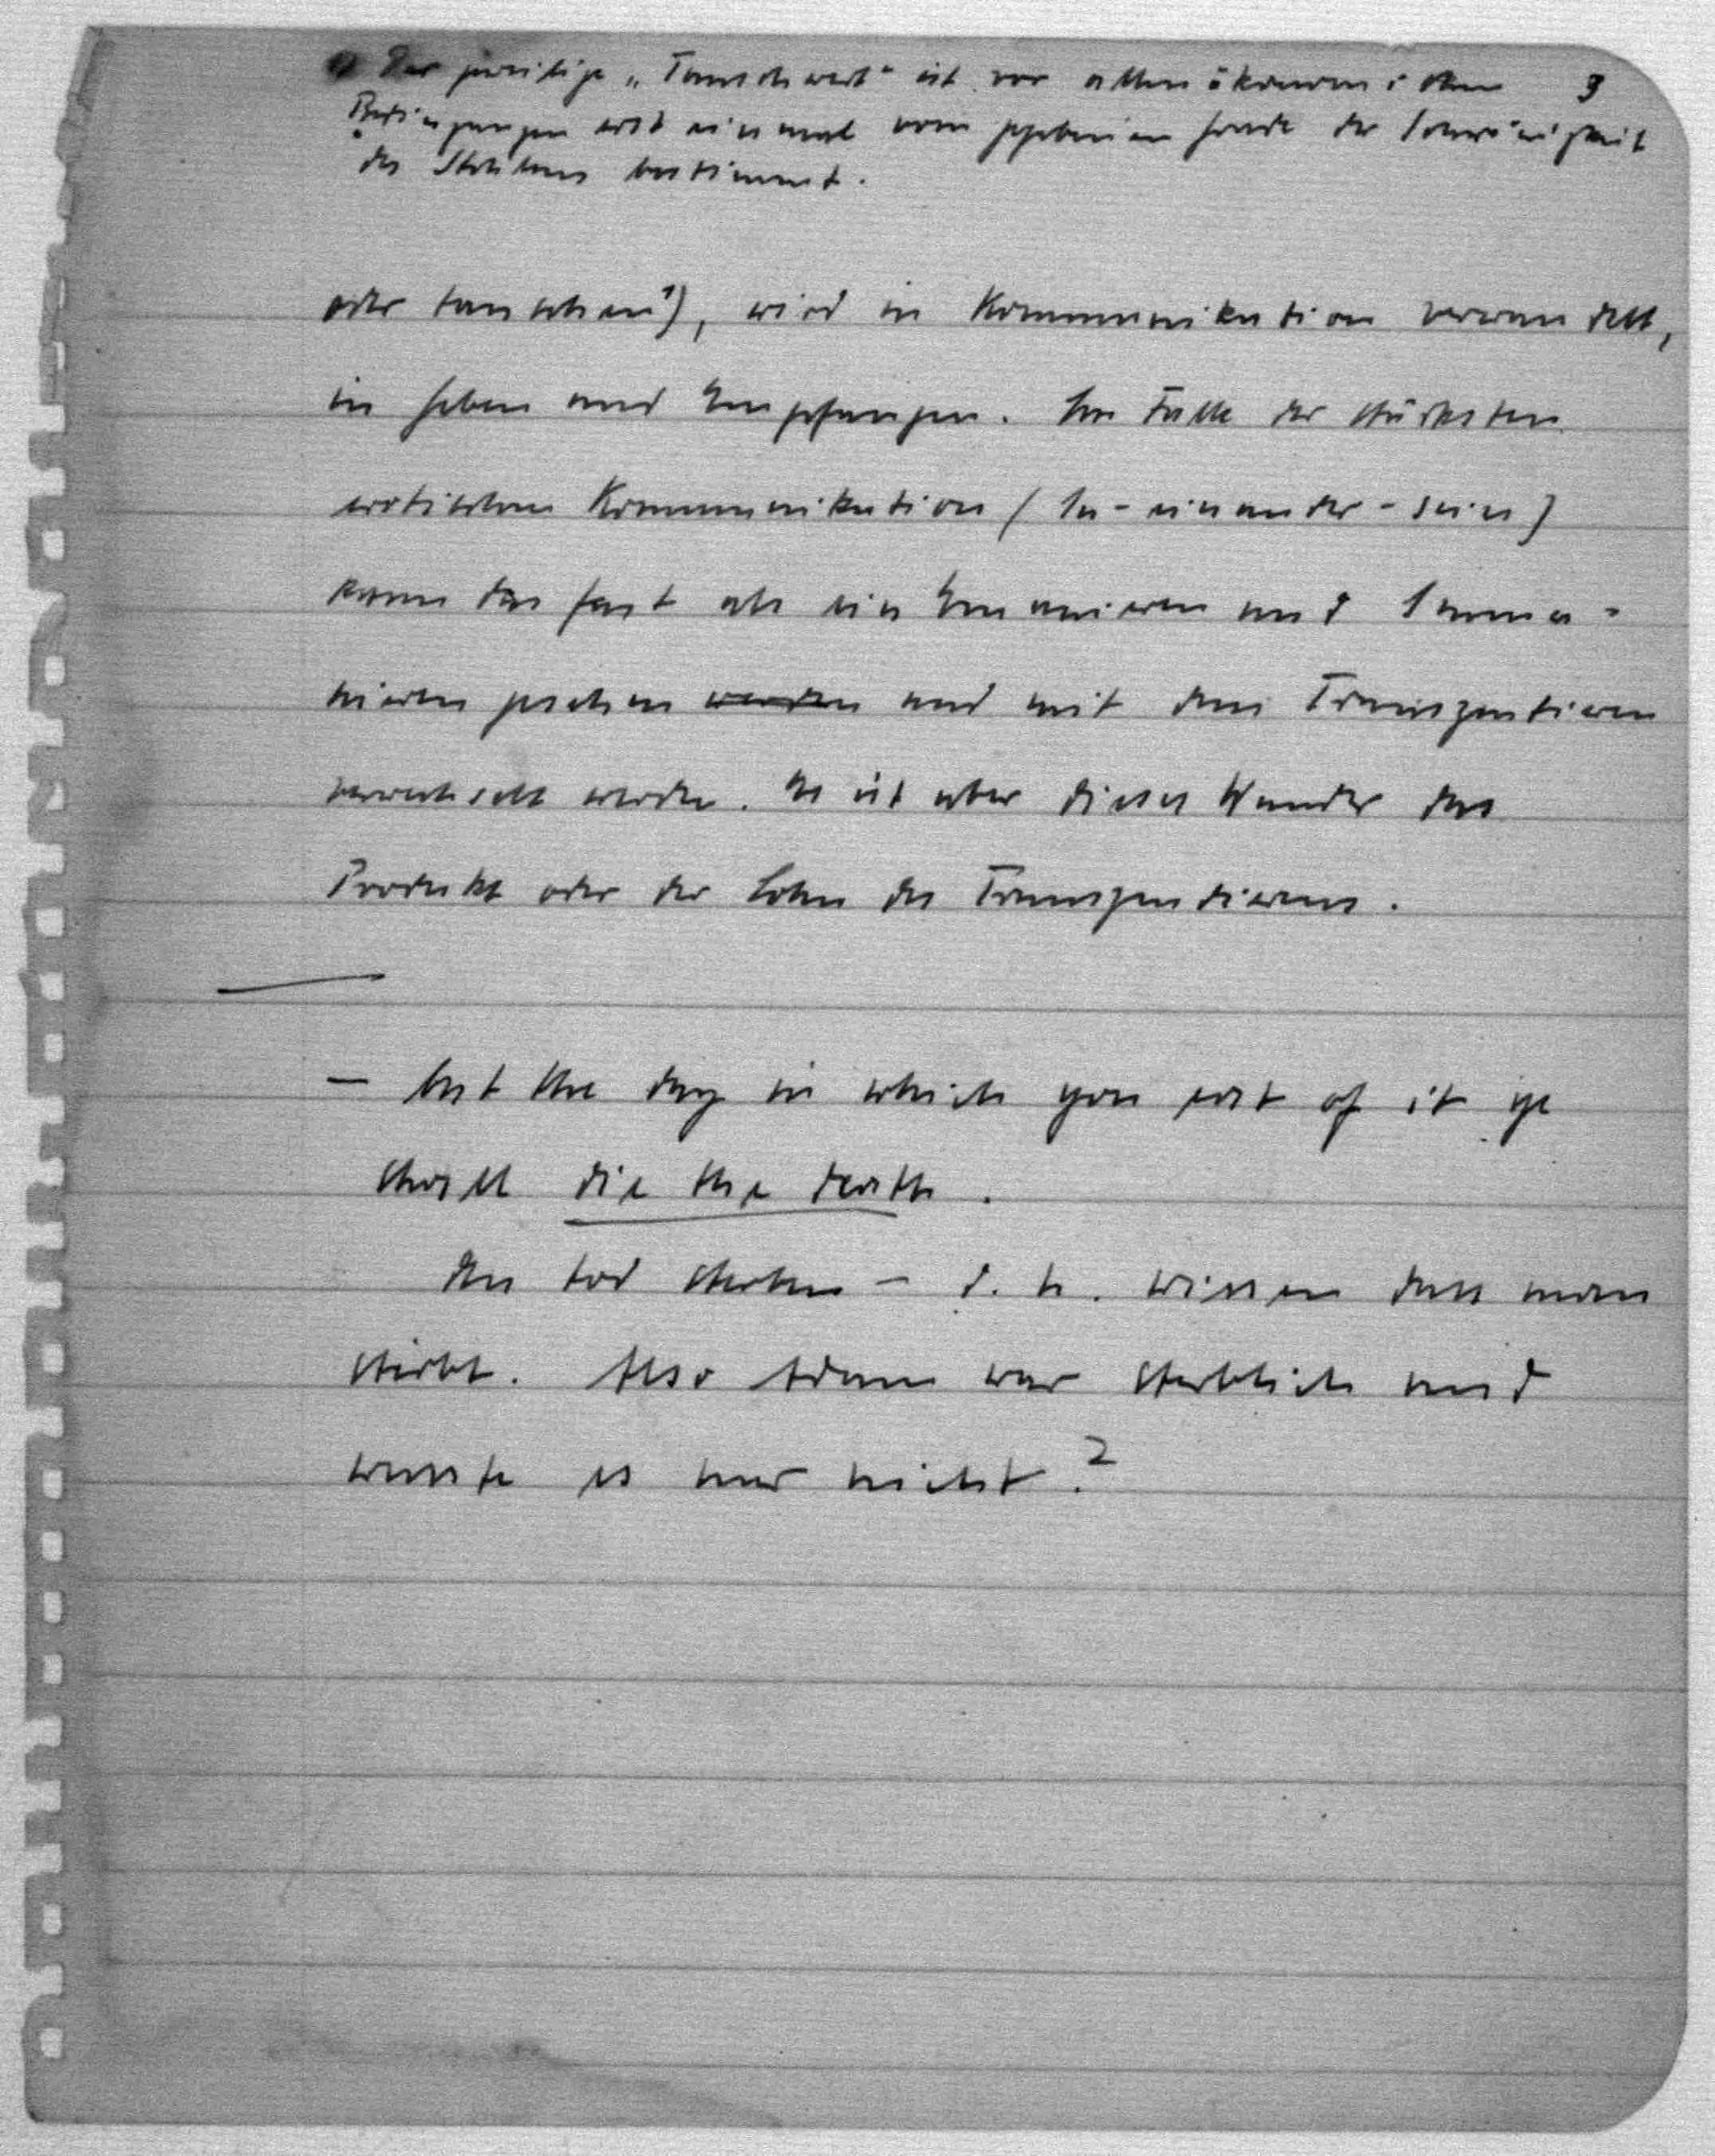 1) Der jeweilige „Tauschwert" ist vor allen ökonomischen 3
Bedingungen erst einmal vom gegebenen Grade der Schwierigkeit
des Stehlens bestimmt.
oder tauschen¹), wird in Kommunikation verwandelt,
in Geben und Empfangen. Im Falle der stärksten
erotischen Kommunikation (In-einander-sein)
kann das fast als ein Emanieren und Imma-
nieren gesehen werden und mit dem Transzendieren
verwechselt werden. Es ist aber dieses Wunder das
Produkt oder der Lohn des Transzendierens.
— but the day in which you eat of it ye
shall die the death.
Den Tod sterben – d. h. wissen dass man
stirbt. Also Adam war sterblich und
wusste es nur nicht?